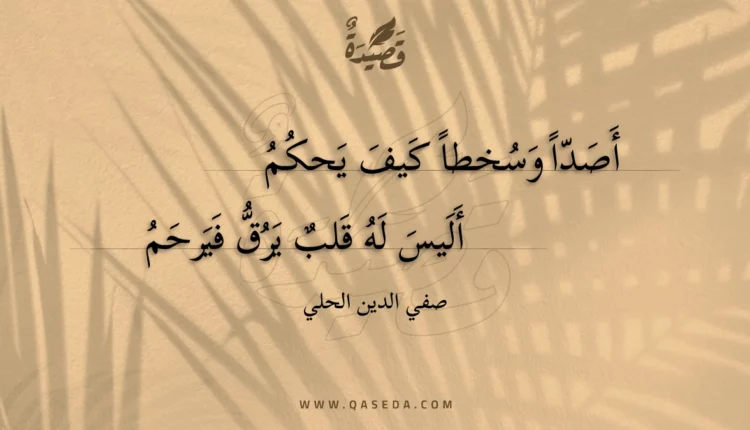 قَصِيْدَةٌ
أَصَدّاً وَسُخطاً كَيفَ يَحكُمُ
أَلَيسَ لَهُ قَلبٌ يَرُقُّ فَيَرحَمُ
صفي الدين الحلي
WWW.QASEDA.COM